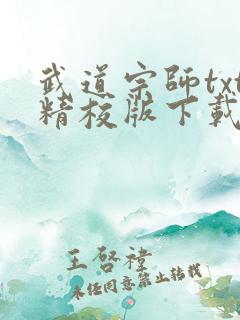 武道宗师txt
精校版下载
王启禕
未经同意禁止转载